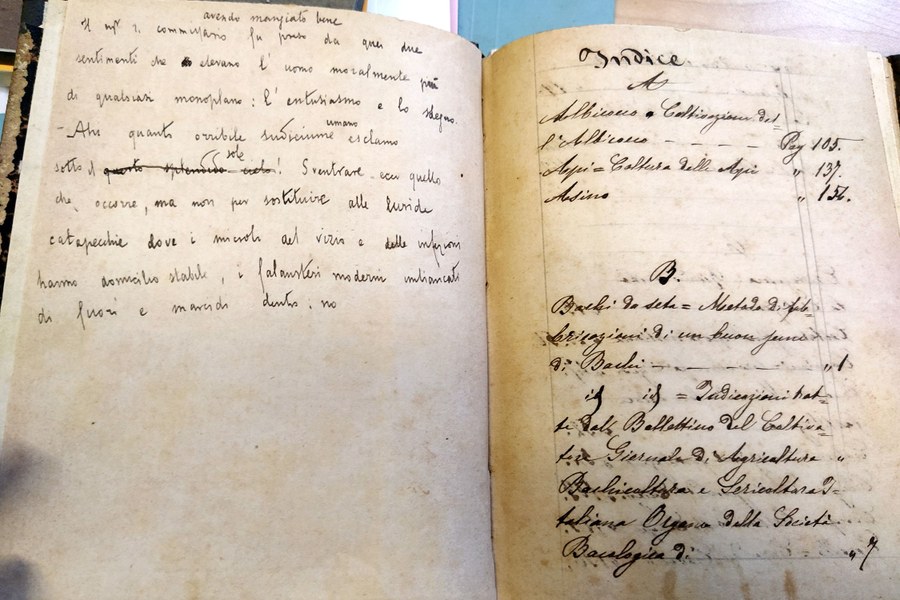 avendo mangiato bene
Il nº 2. commissario fu preso da quei due
sentimenti che elevano l'uomo moralmente più
di qualsiasi monoplano: l'entusiasmo e lo sdegno.
umano
- Ahi quanto orribile sudiciume esclamò
sole
sotto il questo splendido cielo! Sventrare ecco quello
che occorre, ma non per sostituire alle luride
catapecchie dove i microbi del vizio e delle infezioni
hanno domicilio stabile, i falansteri moderni imbiancati
di fuori e marcidi dentro: no
Indice
A
Albicocco = Coltivazione del
l'Albicocco - - - - - Pag 105.
Api = Coltura delle Api " 137.
Asino " 154.
B.
Bachi da seta = Metodo di fab
bricazioni di un buon seme
di Bachi - - - - - " 1
id id = Indicazioni trat=
te dal Bollettino del Coltiva=
tore Giornale di Agricoltura "
Bachicoltura e Sericoltura I=
taliana Organo della Società
Bacologica di " 7